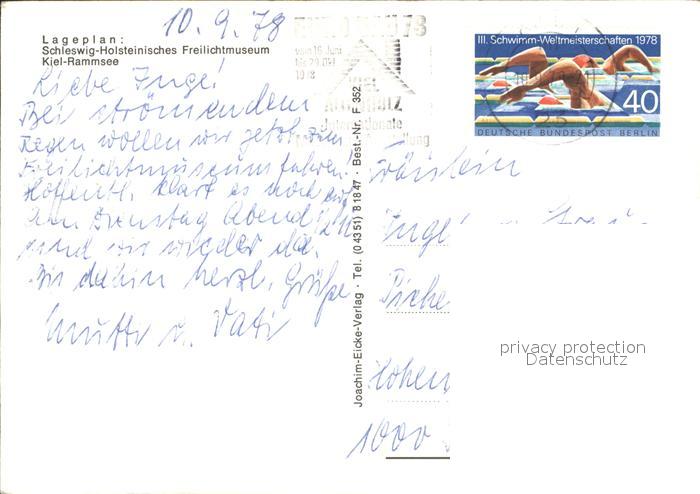 10.9.78
Lageplan:
Schleswig-Holsteinisches Freilichtmuseum
Kiel-Rammsee
Liebe Inge!
Bei strömendem
Regen wollen wir jetzt zum
Freilichtmuseum fahren!
Hoffentl. klart es noch auf
Am Dienstag Abend
sind wir wieder da.
Bis dahin herzl. Grüße
Mutti u. Vati
Joachim-Eicke-Verlag · Tel. (04351) 81847 · Best.-Nr. F 352
vom 16. Juni
1978
III. Schwimm-Weltmeisterschaften 1978
40
DEUTSCHE BUNDESPOST BERLIN
Fräulein
Inge
Hohen
1000
privacy protection
Datenschutz